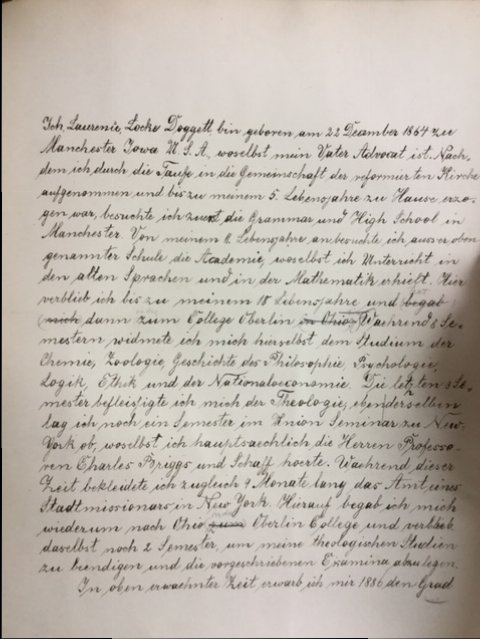 Ich, Laurenie, Locke Doggett, bin geboren am 22 December 1864 zu
Manchester Iowa U. S. A., woselbst mein Vater Advocat ist. Nach
dem ich durch die Taufe in die Gemeinschaft der reformierten Kirche
aufgenommen und bis zu meinem 5. Lebensjahre zu Hause erzo-
gen war, besuchte ich zuerst die Grammar und High School in
Manchester. Von meinem Lebensjahre an besuchte ich ausser oben
genannter Schule die Academie, woselbst ich Unterricht in
den alten Sprachen und in der Mathematik erhielt. Hier
verblieb ich bis zu meinem 18 Lebensjahre und begab
mich dann zum College Oberlin in Ohio. Waehrend 8 Se-
mestern widmete ich mich hierselbst dem Studium der
Chemie, Zoologie, Geschichte des Philosophie, Psychologie,
Logik, Ethik und der Nationaloeconomie. Die letzten Se-
mester befleistigte ich mich der Theologie, ebenderselben
lag ich noch ein Semester im Union Seminar zu New-
York ob, woselbst ich hauptsaechlich die Herren Professo-
ren Charles Briggs und Schaff hoerte. Waehrend dieser
Zeit bekleidete ich zugleich 9 Monate lang das Amt eines
Stadtmissionars in New York. Hierauf begab ich mich
wiederum nach Ohio zum Oberlin College und verblieb
daselbst noch 2 Semester, um meine theologischen Studien
zu beendigen und die vorgeschriebenen Examina abzulegen.
In oben erwaehnter Zeit erwarb ich mir 1886 den Grad